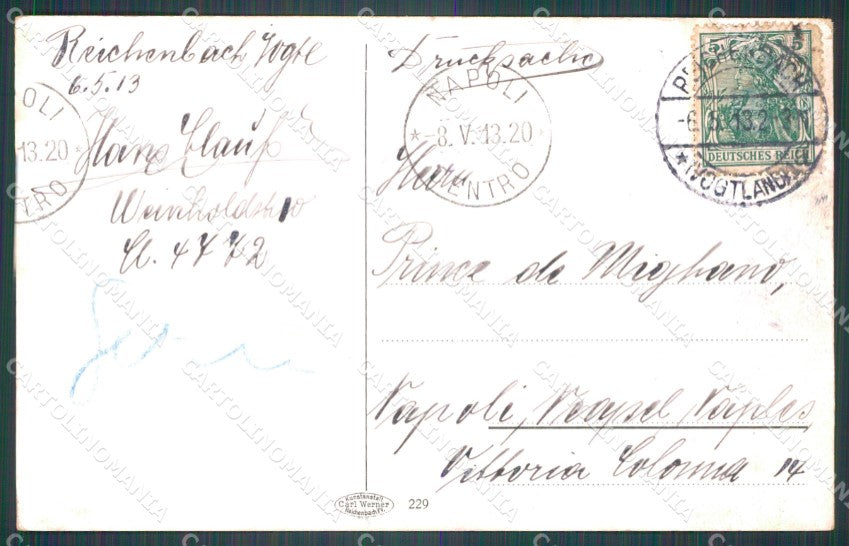 Reichenbach Vogtl
6.5.13
Hans Clauß
Weinholdstr 10
Cl. 4772
Drucksache
NAPOLI
* -8. V. 13.20 *
CENTRO
POLI
13.20 *
TRO
REICHENBACH
-6.5.13.2
* (VOGTLAND) *
5
DEUTSCHES REICH
Herrn
Prince de Migliano,
Napoli, Neapel Naples
Vittoria Colonna 14
Kunstanstalt
Carl Werner
Reichenbach i/V.
229
CARTOLINOMANIA